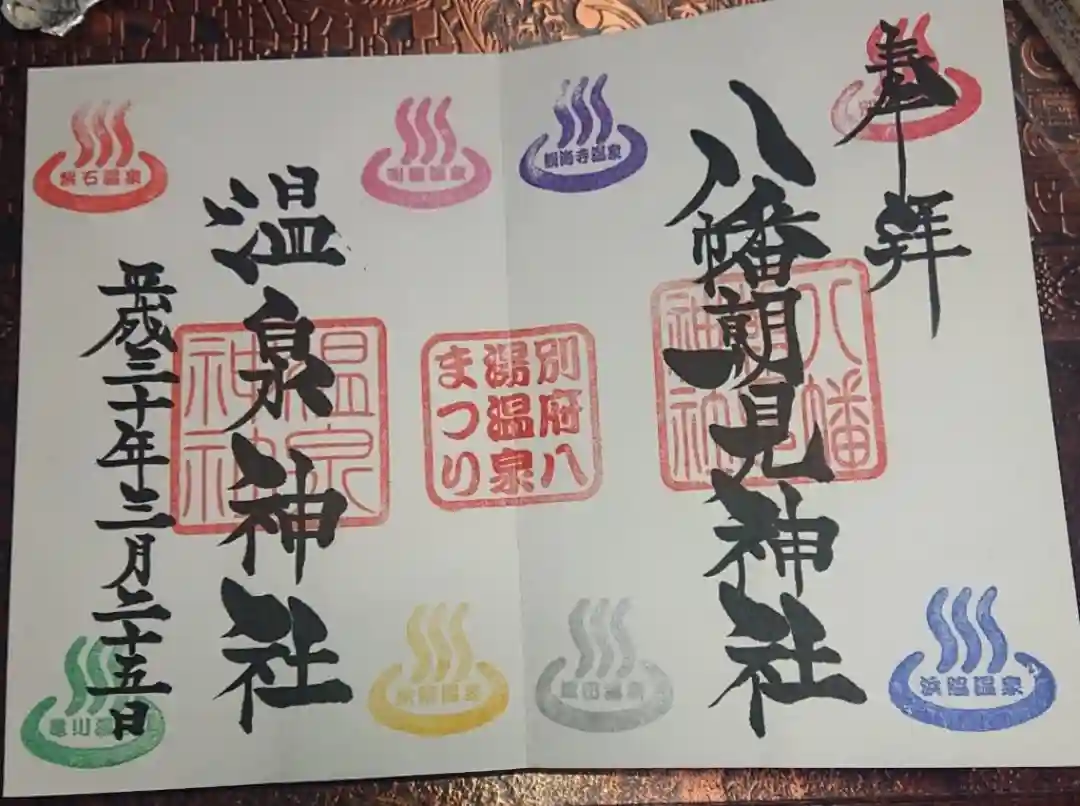 奉拝
八幡朝見神社
八幡
朝見
神社
浜脇温泉
観海寺温泉
堀田温泉
別府八
湯温泉
まつり
明礬温泉
鉄輪温泉
温泉神社
温泉
平成三十年三月二十五日
柴石温泉
亀川温泉